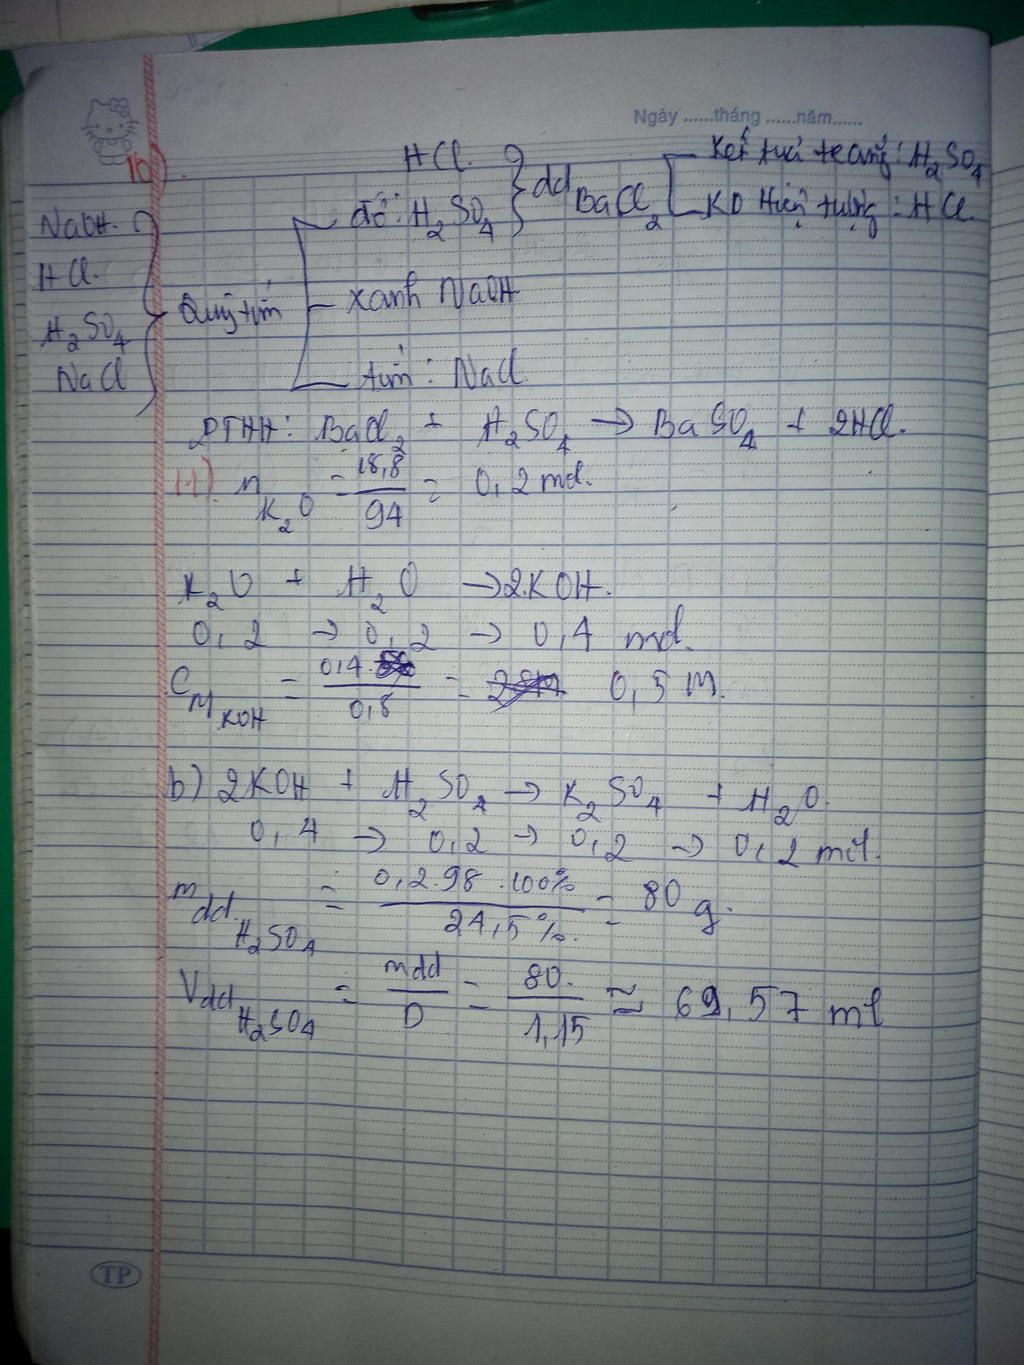 Ngày ......tháng ......năm......
10)
NaOH.
HCl.
H2SO4
NaCl
Quỳ tím
HCl.
đỏ: H2SO4
xanh NaOH
tím: NaCl
dd BaCl2
Kết tủa trắng: H2SO4
KO Hiện tượng: HCl
PTHH: BaCl2 + H2SO4 → BaSO4 + 2HCl.
11) nK2O = 18,8/94 = 0,2 mol.
K2O + H2O → 2KOH.
0,2 → 0,2 → 0,4 mol.
CM KOH = 0,4/0,8 = 0,5 M.
b) 2KOH + H2SO4 → K2SO4 + H2O.
0,4 → 0,2 → 0,2 → 0,2 mol.
mdd H2SO4 = 0,2.98.100%/24,5% = 80 g.
Vdd H2SO4 = mdd/D = 80/1,15 ≈ 69,57 ml
TP